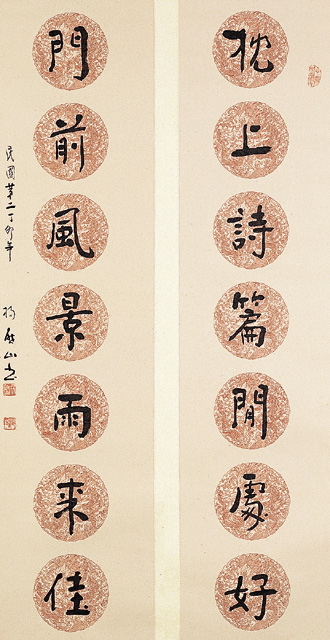 枕上詩篇閒處好
門前風景雨来佳
民國苐二丁卯年